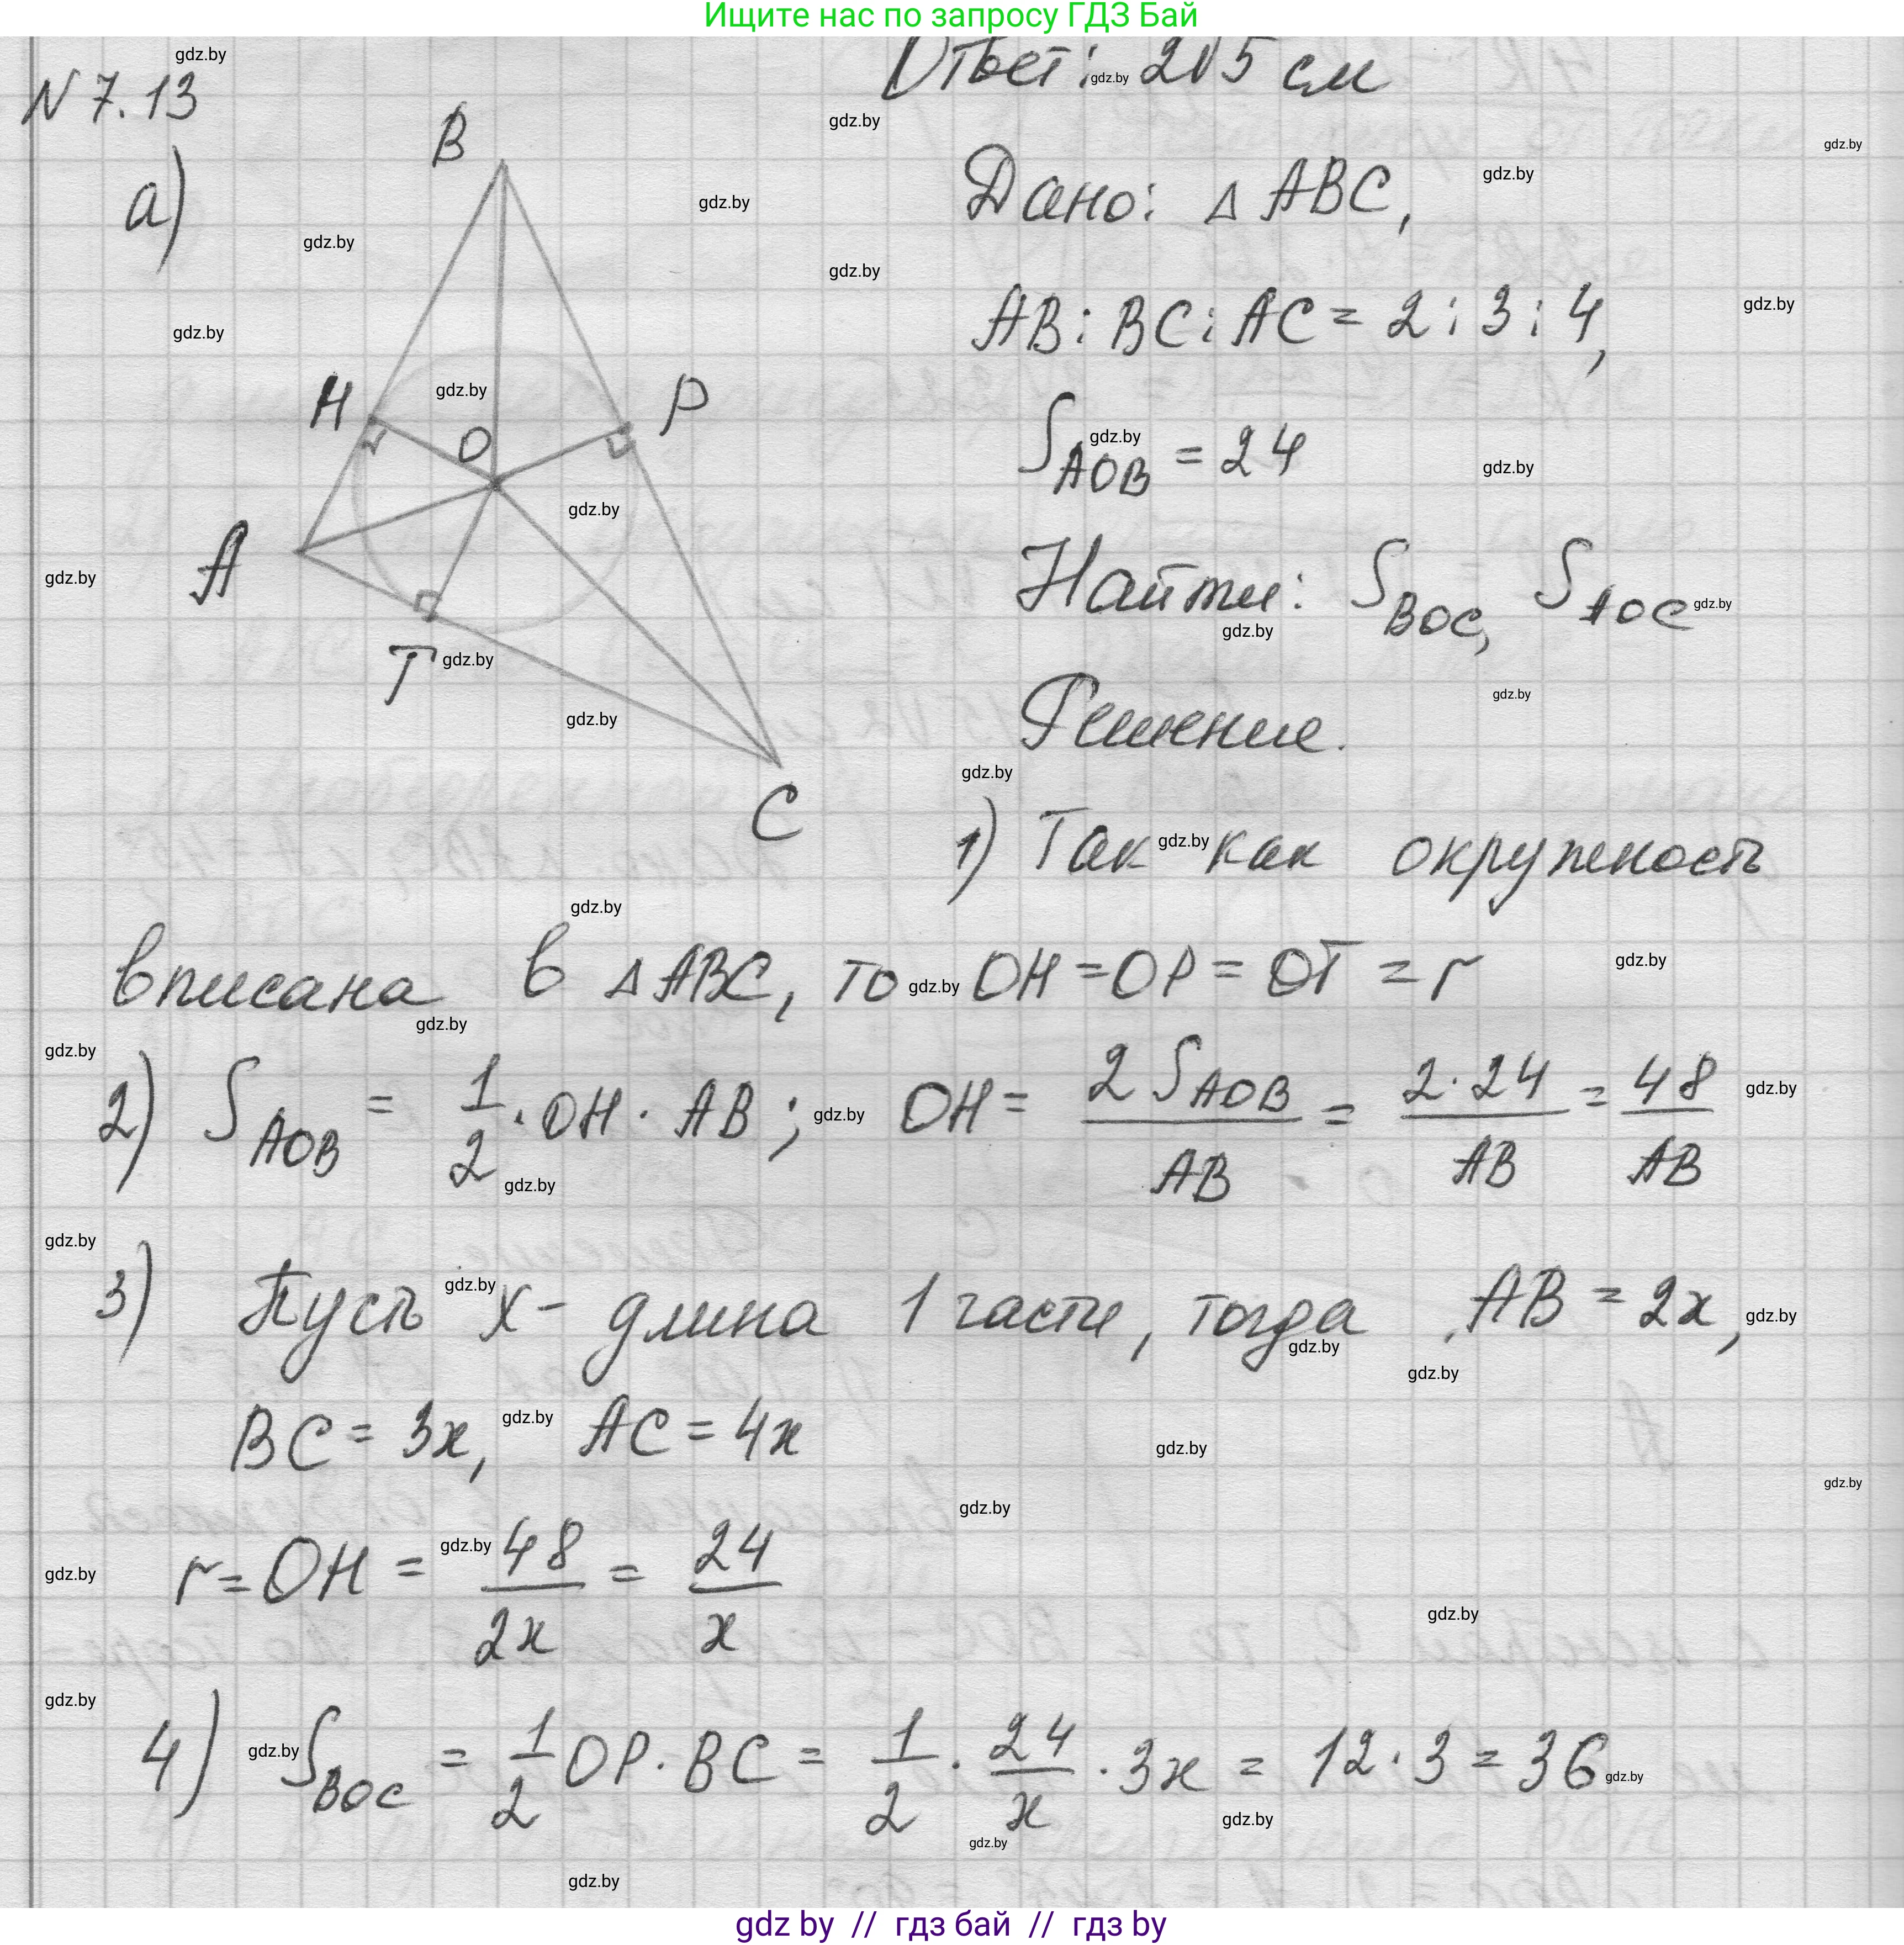 Ищите нас по запросу ГДЗ Бай
Ответ: 2√5 см
N 7.13
а)
B
H
P
O
A
T
C
Дано: △ ABC,
AB : BC : AC = 2 : 3 : 4,
S_AOB = 24
Найти: S_BOC, S_AOC
Решение.
1) Так как окружность
вписана в △ ABC, то OH = OP = OT = r
2) S_AOB = 1/2 · OH · AB ; OH = 2 S_AOB / AB = 2·24 / AB = 48 / AB
3) Пусть x - длина 1 части, тогда AB = 2x,
BC = 3x, AC = 4x
r = OH = 48 / 2x = 24 / x
4) S_BOC = 1/2 OP · BC = 1/2 · 24/x · 3x = 12 · 3 = 36
gdz.by
gdz by // гдз бай // гдз by